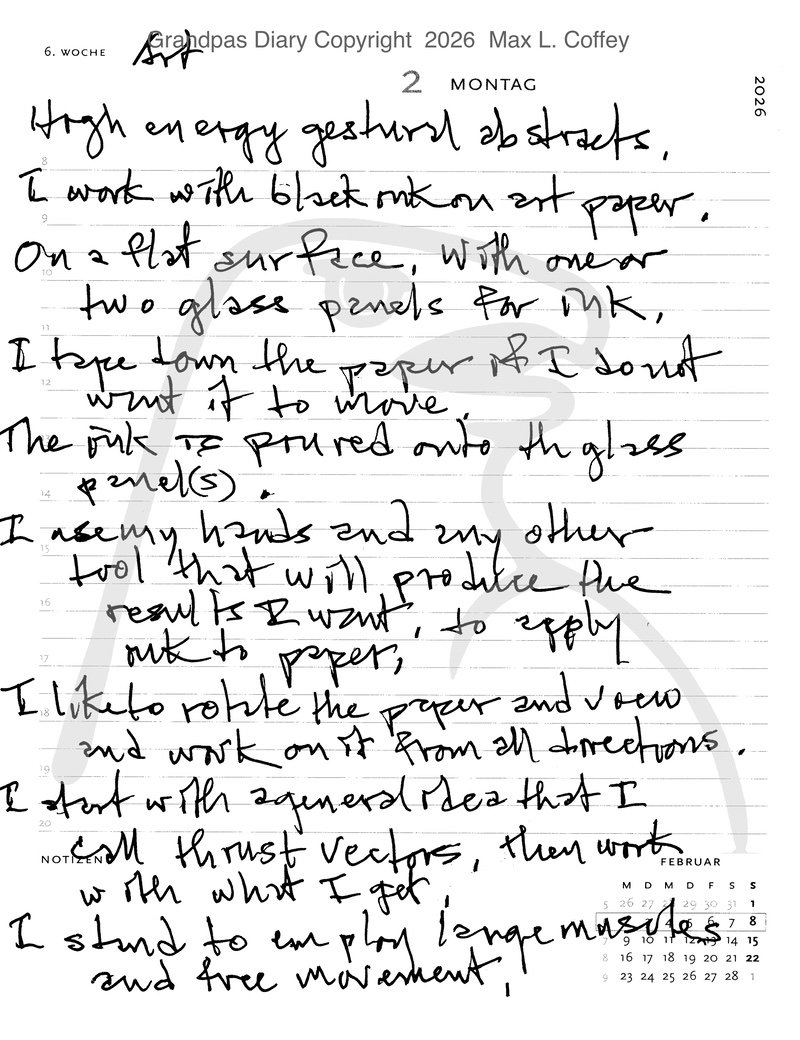 Grandpas Diary Copyright 2026 Max L. Coffey
6. WOCHE Art
2 MONTAG
2026
High energy gestural abstracts.
8
I work with black ink on art paper.
9
On a flat surface, with one or
10
two glass panels for ink,
11
I tape down the paper if I do not
12
want it to move.
The ink is poured onto th glass
panel(s).
14
I use my hands and any other
15
tool that will produce the
16
results I want, to apply
17
ink to paper,
I like to rotate the paper and view
18
and work on it from all directions.
19
I start with a general idea that I
20
call thrust vectors, then work
NOTIZEN
FEBRUAR
with what I get,
M D M D F S S
5 26 27 28 29 30 31 1
I stand to employ large muscles
4 5 6 7 8
7 9 10 11 12 13 14 15
and free movement,
8 16 17 18 19 20 21 22
9 23 24 25 26 27 28 1